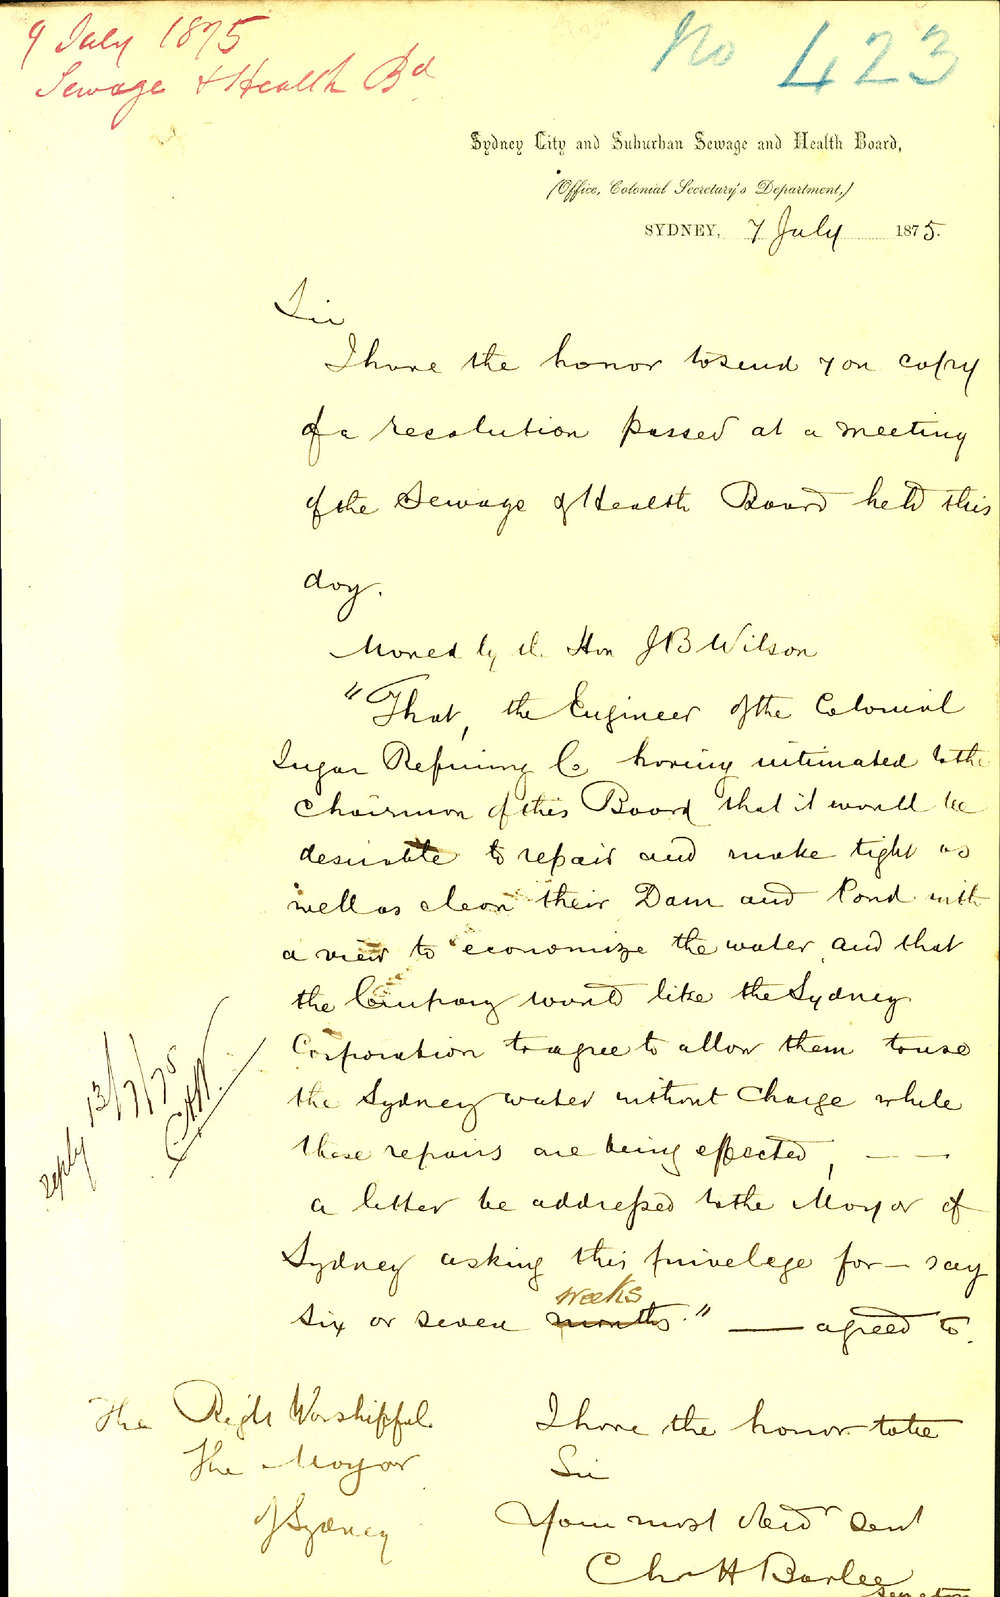 9 July 1875
Sewage & Health Bd
No 423
Sydney City and Suburban Sewage and Health Board,
(Office, Colonial Secretary's Department,)
SYDNEY, 7 July 1875.
Sir
I have the honor to send you copy
of a resolution passed at a meeting
of the Sewage & Health Board held this
day.
Moved by the Hon J B Wilson
"That, the Engineer of the Colonial
Sugar Refining Co having intimated to the
Chairman of this Board that it would be
desirable to repair and make tight as
well as clean their Dam and Pond with
a view to economize the water, and that
the Company would like the Sydney
Corporation to agree to allow them to use
the Sydney water without charge while
those repairs are being effected, — —
a letter be addressed to the Mayor of
Sydney asking this privelege for – say
weeks
six or seven months." — agreed to.
reply 13/7/75
The Right Worshipful
The Mayor
of Sydney
I have the honor to be
Sir
Your most obedr servt
Chs H Barlee